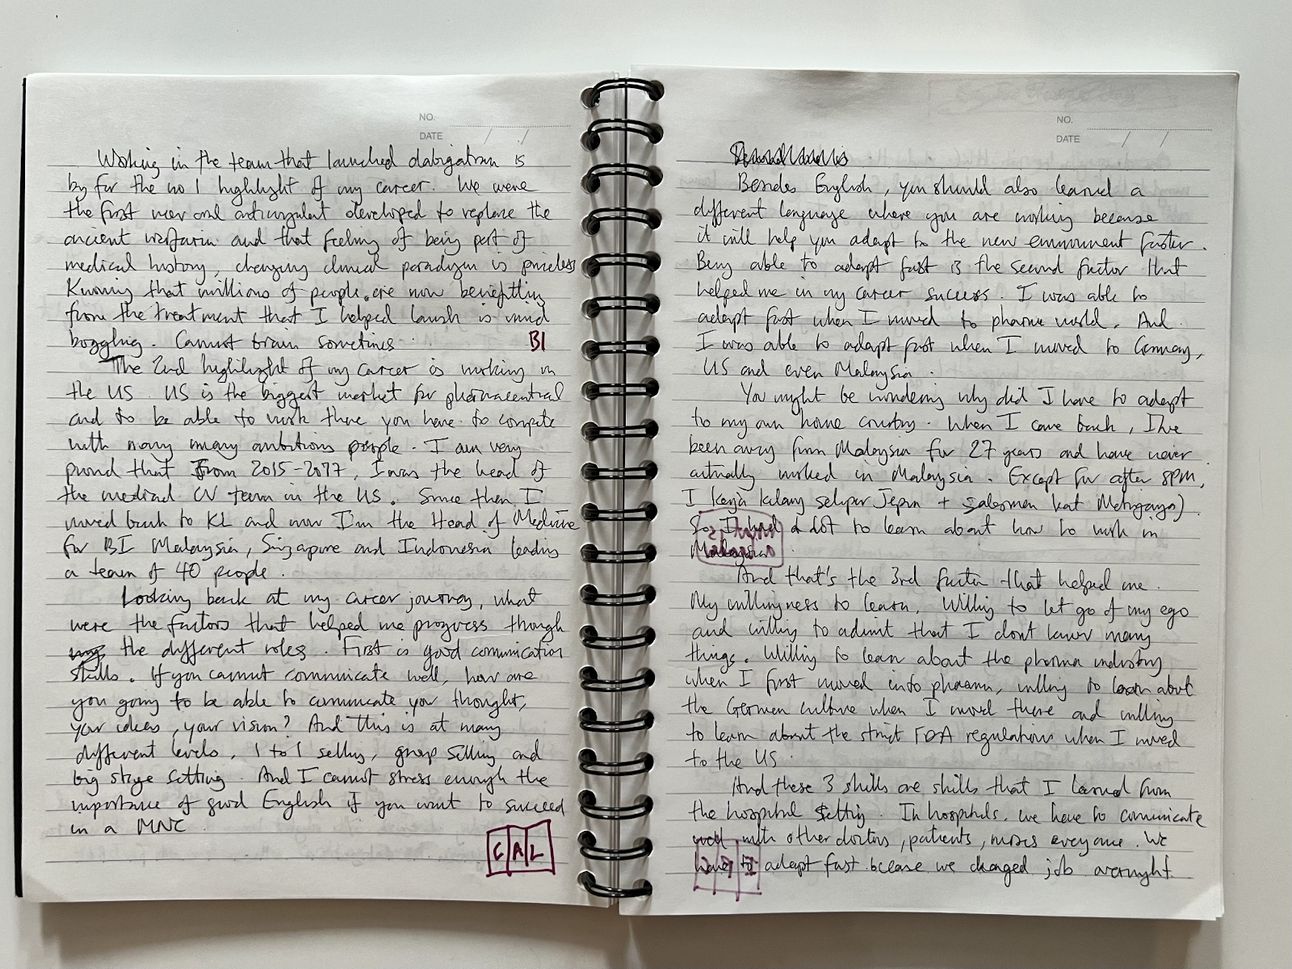 NO.
DATE / /
Working in the team that launched dabigatran is
by far the no 1 highlight of my career. We were
the first new oral anticoagulant developed to replace the
ancient warfarin and that feeling of being part of
medical history, changing clinical paradigm is priceless
Knowing that millions of people are now benefitting
from the treatment that I helped launch is mind
boggling. Cannot brain sometimes
BI
The 2nd highlight of my career is working in
the US. US is the biggest market for pharmaceutical
and to be able to work there you have to compete
with many many ambitious people. I am very
proud that from 2015-2017, I was the head of
the medical CV team in the US. Since then I
moved back to KL and now I'm the Head of Medicine
for BI Malaysia, Singapore and Indonesia leading
a team of 40 people.
Looking back at my career journey, what
were the factors that helped me progress though
the different roles. First is good comunication
skills. If you cannot communicate well, how are
you going to be able to cumunicate you thought,
your ideas, your vision? And this is at many
different levels, 1 to 1 selling, group selling and
big stage setting. And I cannot stress enough the
importance of good English if you want to succeed
in a MNC.
CAL
NO.
DATE / /
Besides English, you should also learned a
different language where you are working because
it will help you adapt to the new environment faster.
Being able to adapt fast is the second factor that
helped me in my career success. I was able to
adapt fast when I moved to pharma world. And
I was able to adapt fast when I moved to Germany,
US and even Malaysia.
You might be wondering why did I have to adapt
to my own home country. When I came back, I've
been away from Malaysia for 27 years and have never
actually worked in Malaysia. Except for after SPM,
I kerja kilang selipar Jepun + salesman kat Metrojaya).
So I had a lot to learn about how to work in
Malaysia.
And that's the 3rd factor that helped me.
My willingness to learn. Willing to let go of my ego
and willing to admit that I dont know many
things. Willing to learn about the pharma industry
when I first moved into pharma, willing to learn about
the German culture when I moved there and willing
to learn about the strict FDA regulations when I moved
to the US.
And these 3 skills are skills that I learned from
the hospital setting. In hospitals, we have to comunicate
well with other doctors, patients, nurses everyone. We
have to adapt fast because we changed job overnight